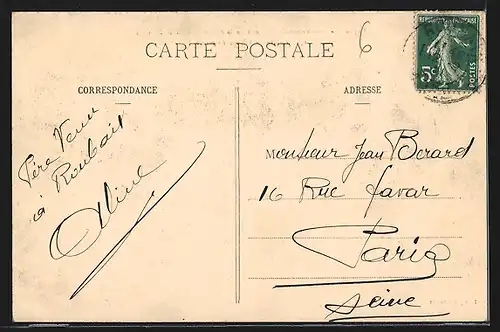 CARTE POSTALE
6
CORRESPONDANCE
ADRESSE
REPUBLIQUE FRANÇAISE
5c
POSTES
à Roubaix
Aline
Monsieur Jean Berard
16 Rue Favar
Paris
Seine